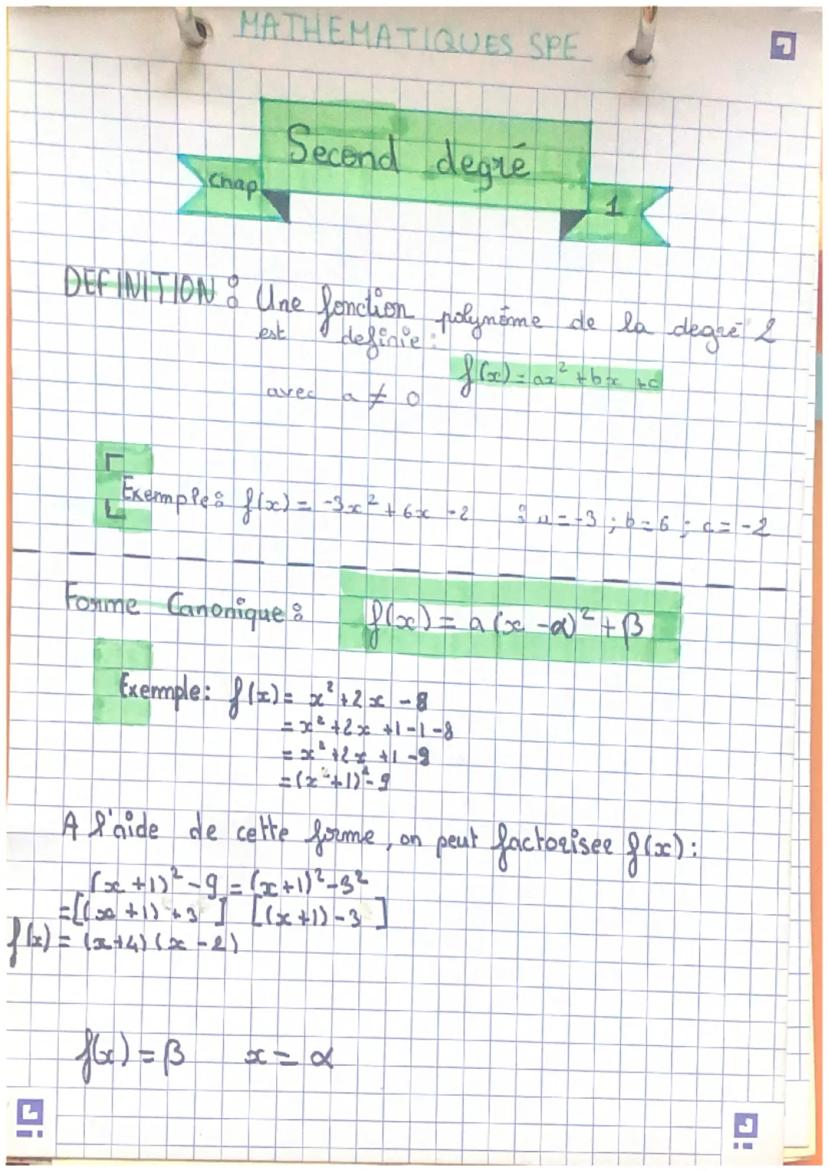 MATHEMATIQUES SPE
Second degré
chap
1
DEFINITION : Une fonction polynôme de la degré 2
est definie :
f(x) = ax² + bx + c
avec a ≠ 0
Exemple : f(x) = -3x² + 6x - 2 : a = -3 ; b = 6 ; c = -2
Forme Canonique : f(x) = a(x - α)² + β
Exemple : f(x) = x² + 2x - 8
= x² + 2x + 1 - 1 - 8
= x² + 2x + 1 - 9
= (x² + 1)² - 9
A l'aide de cette forme, on peut factoriser f(x) :
(x + 1)² - 9 = (x + 1)² - 3²
= [(x + 1) + 3] [(x + 1) - 3]
f(x) = (x + 4)(x - 2)
f(x) = β x = α